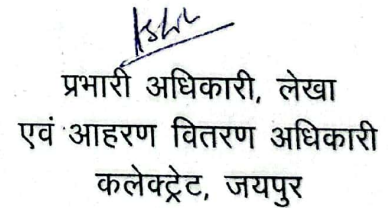 प्रभारी अधिकारी, लेखा
एवं आहरण वितरण अधिकारी
कलेक्ट्रेट, जयपुर